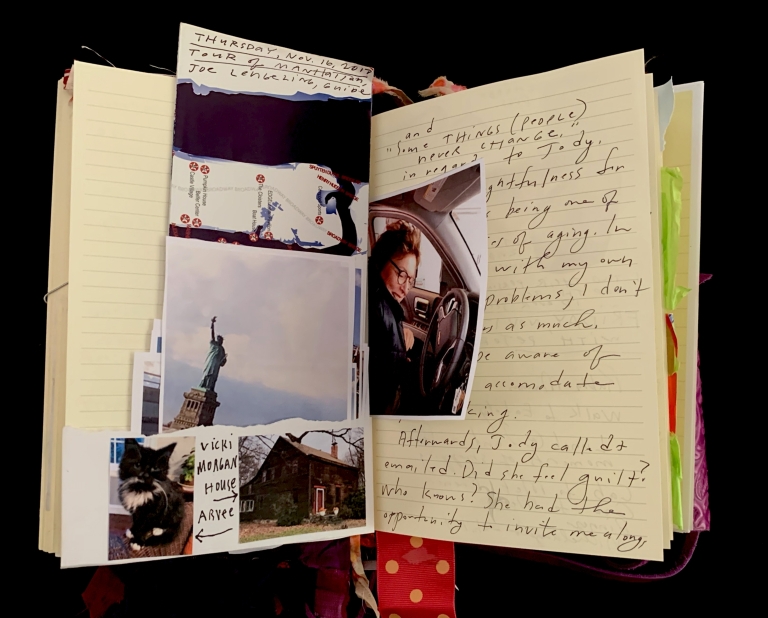 THURSDAY, NOV. 16, 2017
TOUR OF MANHATTAN
JOE LENGELING, GUIDE
VICKI
MORGAN
HOUSE
ARVEE
and
"Some THINGS (PEOPLE)
never CHANGE,"
in regard to Jody.
ghtfulness for
being one of
es of aging. In
with my own
problems, I don't
as much.
be aware of
accomodate
king.
Afterwards, Jody called &
emailed. Did she feel guilt?
Who knows? She had the
opportunity to invite me along,